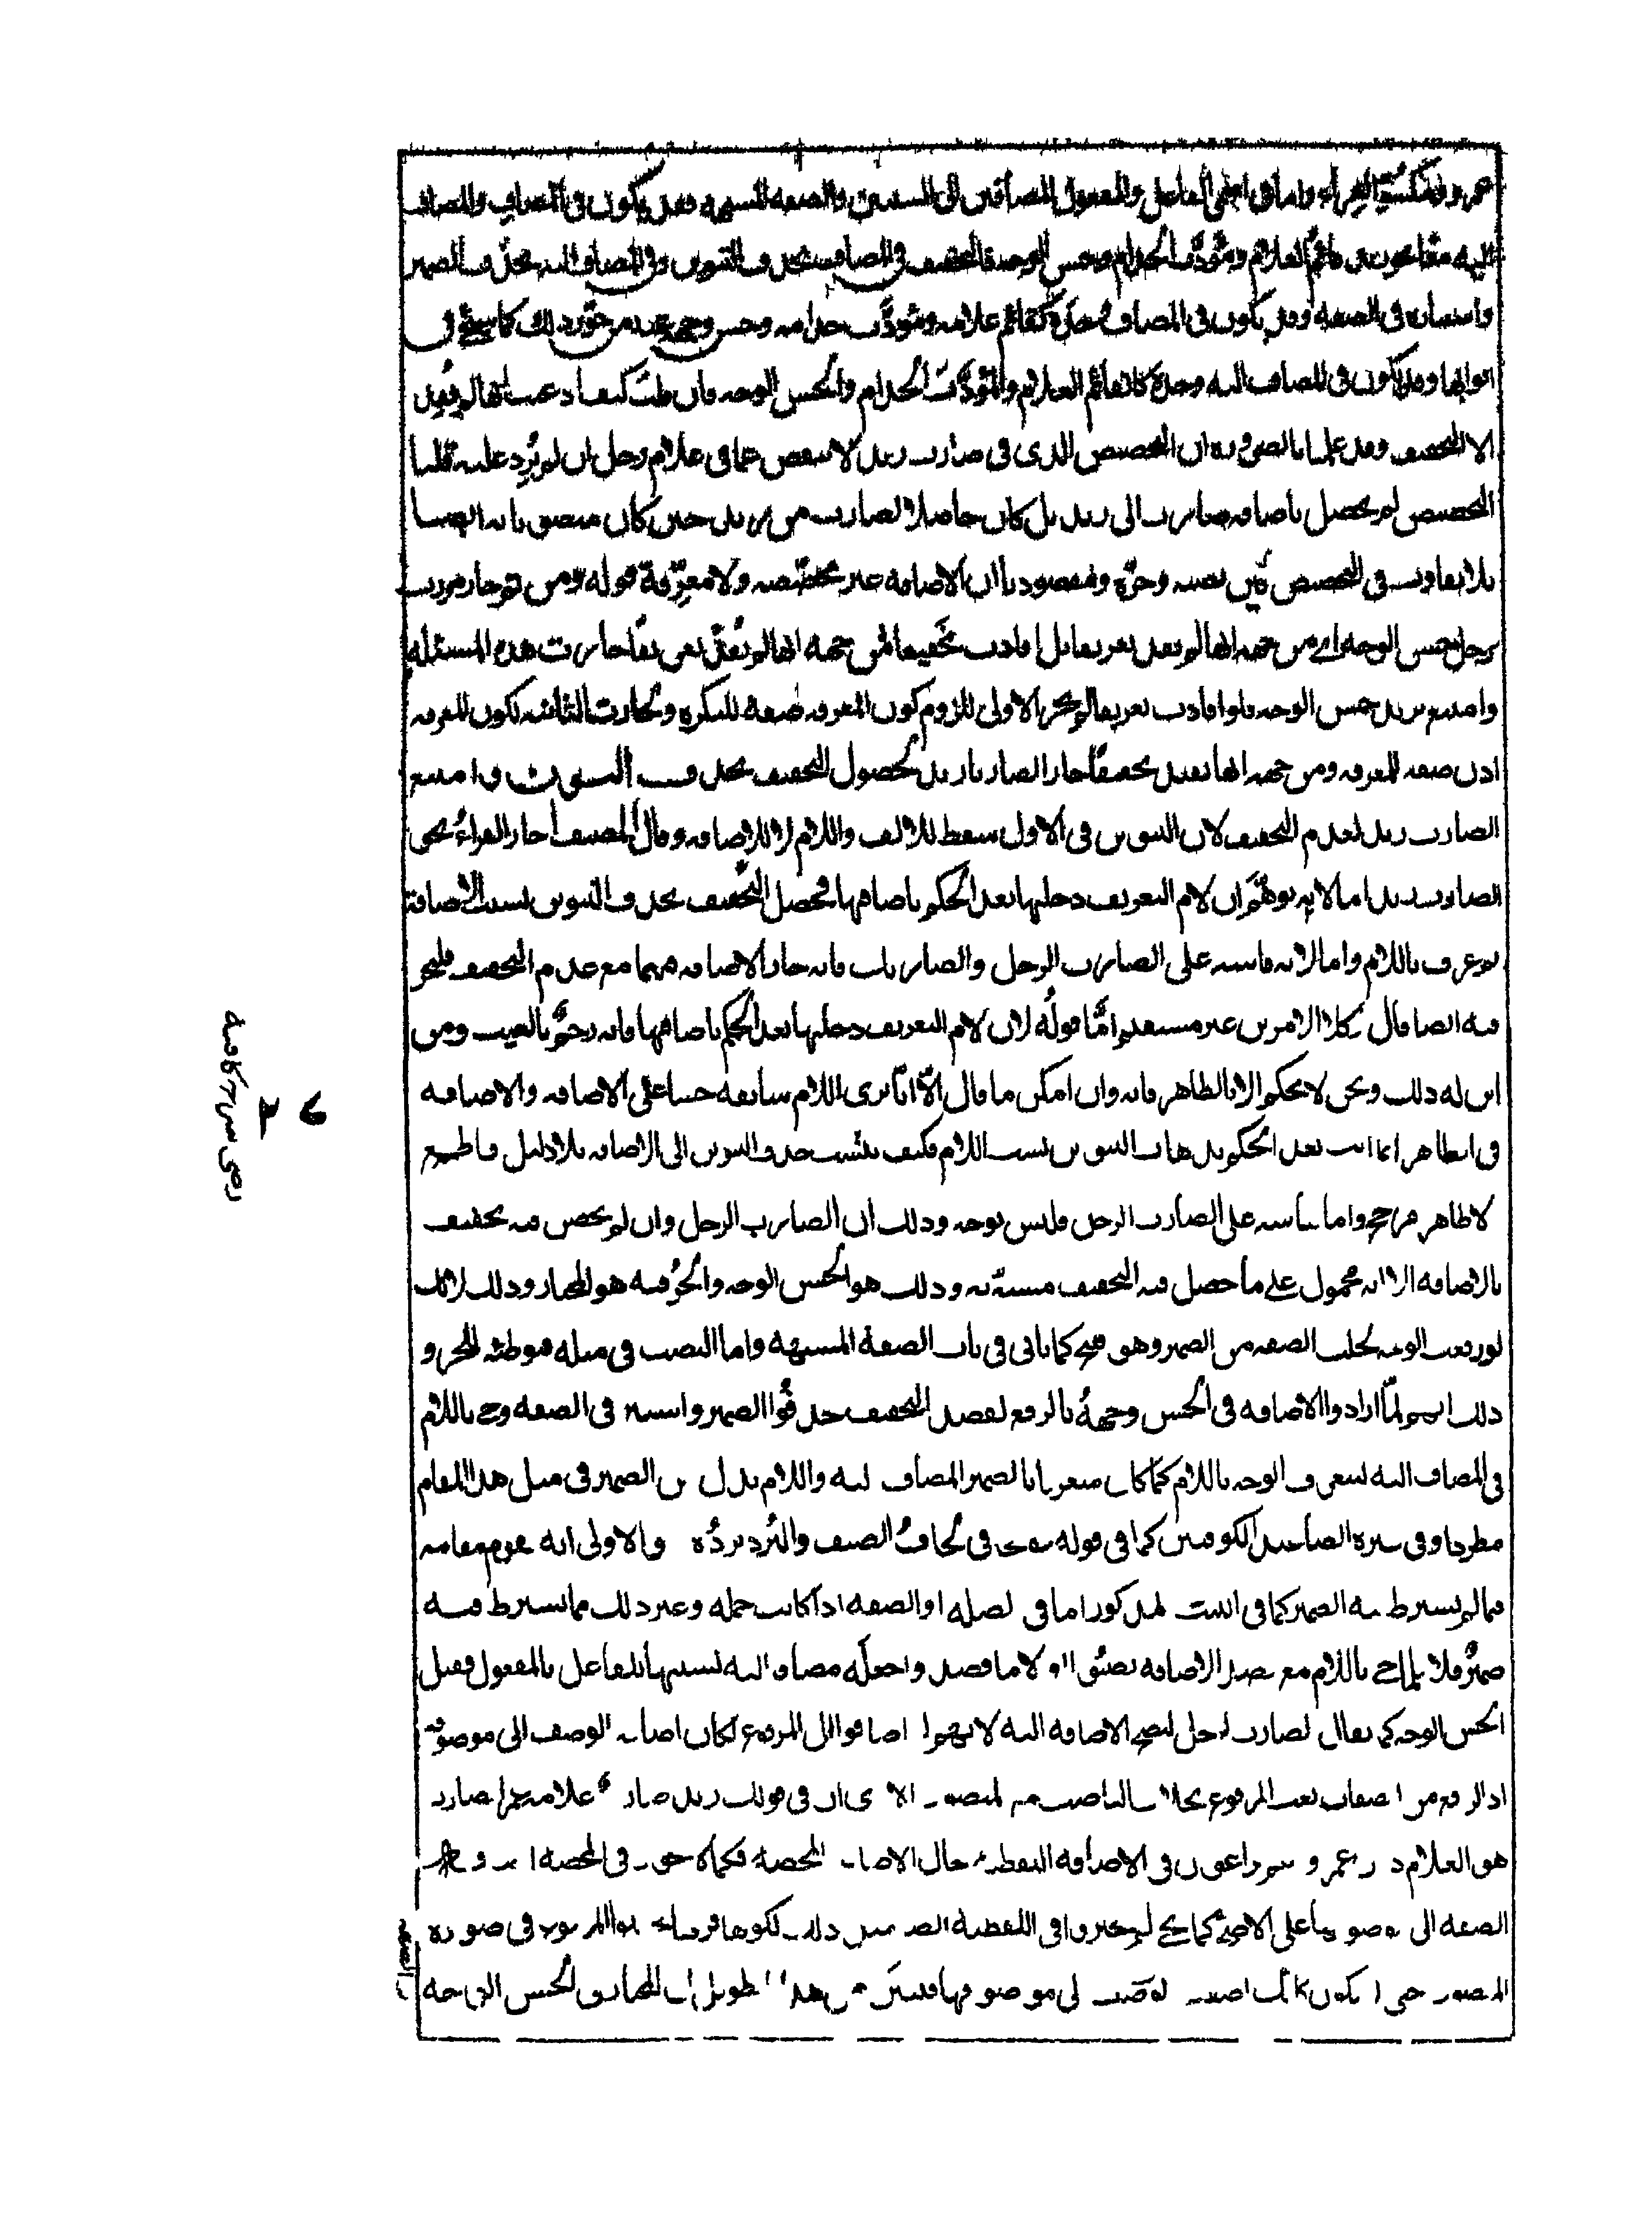 عمرو وفى اسمى الفاعل والمفعول المضافين الى السببين والصفة المشبهة فقد يكون فى المضاف والمضاف
اليه معا نحو زيد قائم الغلام ومؤدب الخدام وحسن الوجه فالتخفيف فى المضاف بحذف التنوين وفى المضاف اليه بحذف الضمير
واستتاره فى الصفة وقد يكون فى المضاف وحده كقائم غلامه ومؤدب خدامه وحسن وجهه عند من جوز ذلك كما سيجئ فى
ابوابها وقد يكون فى المضاف اليه وحده كالقائم الغلام والمؤدب الخدام والحسن الوجه فان قلت كيف ادعيت انها لم تفد
الا التخفيف وقد علمنا بالضرورة ان التخصيص الذى فى ضارب زيد لا ينقص عما فى غلام رجل ان لم يزد عليه قلنا
التخصيص لم يحصل باضافة ضارب الى زيد بل كان حاصلا لضارب من زيد حين كان منصوبا به ايضا
بلا تفاوت فى التخصيص بين نصبه وجره ومقصودنا ان الاضافة غير مخصصة ولا معرفة قوله ومن ثم جاز مررت
برجل حسن الوجه اى من جهة انها لم تفد تعريفا بل افادت تخفيفا فمن جهة انها لم تفد تعريفا جازت هذه المسئلة
وامتنع بزيد حسن الوجه فلو افادت تعريفا لم يجز الاولى للزوم كون المعرفة صفة للنكرة ولجازت الثانية لكون المعرفة
اذن صفة للمعرفة ومن جهة انها تفيد تخفيفا جاز الضاربا زيد لحصول التخفيف بحذف النون وامتنع
الضارب زيد لعدم التخفيف لان التنوين فى الاول سقط للالف واللام لا للاضافة وقال المصنف اجاز الفراء نحو
الضارب زيد اما لانه توهم ان لام التعريف دخلتها بعد الحكم باضافتها فحصل التخفيف بحذف التنوين بسبب الاضافة
ثم عرف باللام واما لانه قاسه على الضارب الرجل والضاربك فانه جاز الاضافة فيهما مع عدم التخفيف فليجز
فيه ايضا قال كلا الامرين غير مستقيم اما قوله لان لام التعريف دخلتها بعد الحكم باضافتها فانه رجم بالغيب ومن
اين له ذلك ونحن لا نحكم الا بالظاهر فانه وان امكن ما قال الا انا نرى اللام سابقة حسا على الاضافة والاضافة
فى الظاهر انما اتت بعد الحكم بذهاب التنوين بسبب اللام فكيف ينسب حذف التنوين الى الاضافة بلا دليل قاطع
لا ظاهر مرجح واما قياسه على الضارب الرجل فليس بوجه وذلك ان الضارب الرجل وان لم يحصل فيه تخفيف
بالاضافة الا انه محمول على ما حصل فيه التخفيف مشبه به وذلك هو الحسن الوجه والجر فيه هو المختار وذلك لانك
لو رفعت الوجه لخلت الصفة من الضمير وهو قبيح كما ياتى فى باب الصفة المشبهة واما النصب فى مثله فتوطئة للجر و
ذلك انهم لما ارادوا الاضافة فى الحسن وجهه بالرفع لقصد التخفيف حذفوا الضمير واستتر فى الصفة وجئ باللام
فى المضاف اليه ليتعرف الوجه باللام كما كان متعرفا بالضمير المضاف اليه واللام بدل من الضمير فى مثل هذا المقام
مطردا وفى غيره الضا عند الكوفيين كما فى قوله لحافى لحاف الضيف والبرد برده والاولى انه يقوم مقامه
فيما لم يشترط فيه الضمير كما فى البيت المذكور اما فى الصلة او الصفة اذا كانت جملة وغير ذلك مما يشترط فيه
ضمير فلا فلما جئ باللام مع قصد الاضافة نصبوا اولا ما قصد واجعله مضافا اليه لتشبيها بالفاعل بالمفعول فقيل
الحسن الوجه كما يقال الضارب الرجل لتصح الاضافة اليه لانهم لو اضافوا الى المرفوع لكان اضافة الوصف الى موصوفه
اذ الرفع من الصفات نعت المرفوع بخلاف الناصب مع المنصوب الا ترى ان فى قولك زيد ضارب غلامه عمرا ضارب
هو الغلام دون عمرو وهم يراعون فى الاضافة اللفظية حال الاضافة المحضة فكما لا يجوز فى المحضة اضافة
الصفة الى موصوفها على الاصح كما يجئ لم يجيزوا فى اللفظية ايضا مثل ذلك لكونها فرعها فجعلوا المرفوع فى صورة
المنصوب حتى لا يكون كانك اضفت الوصف الى موصوفها فتبين من هذا التطويل ان المضاف الحسن الوجه
الصفة
رضى شرح كافية
٢
٧